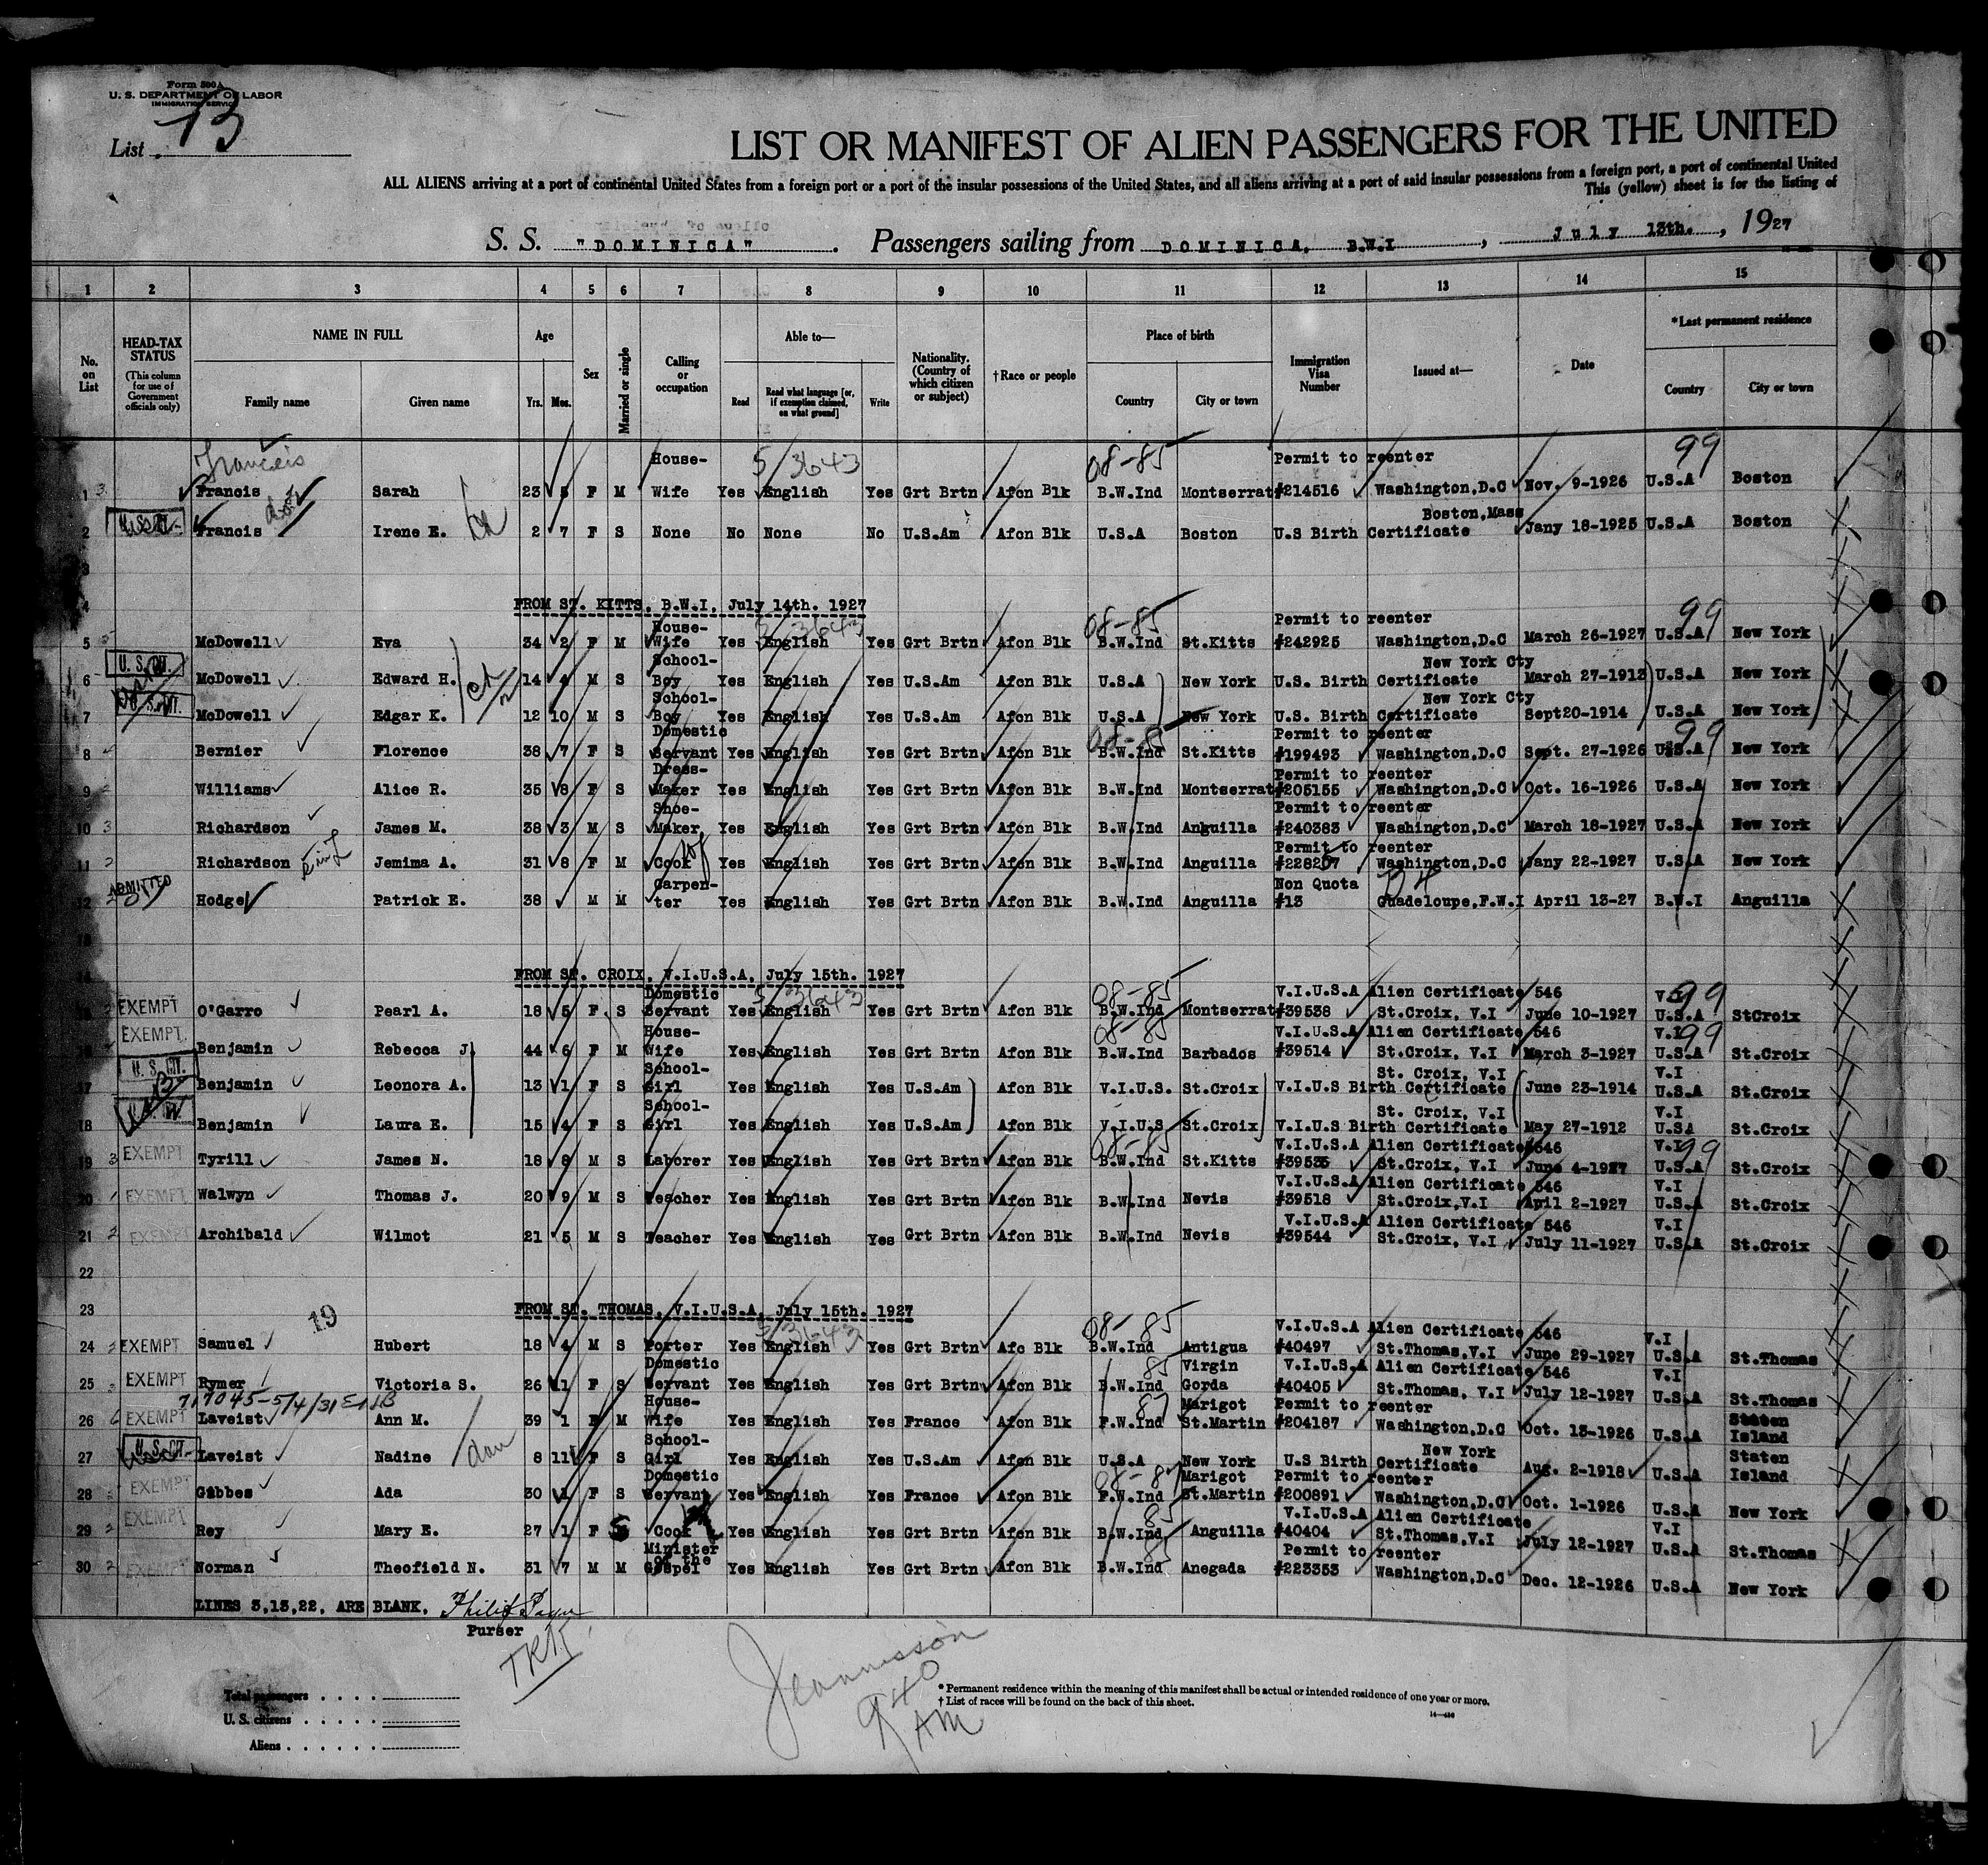 Form 500 A
U. S. DEPARTMENT OF LABOR
IMMIGRATION SERVICE
List 13
LIST OR MANIFEST OF ALIEN PASSENGERS FOR THE UNITED
ALL ALIENS arriving at a port of continental United States from a foreign port or a port of the insular possessions of the United States, and all aliens arriving at a port of said insular possessions from a foreign port, a port of continental United
This (yellow) sheet is for the listing of
S. S. "DOMINICA". Passengers sailing from DOMINICA, B.W.I , July 13th. , 1927
1 2 3 4 5 6 7 8 9 10 11 12 13 14 15
No. on List
HEAD-TAX STATUS (This column for use of Government officials only)
NAME IN FULL Family name Given name
Age Yrs. Mos.
Sex
Married or single
Calling or occupation
Able to— Read Read what language [or, if exemption claimed, on what ground] Write
Nationality. (Country of which citizen or subject)
†Race or people
Place of birth Country City or town
Immigration Visa Number
Issued at—
Date
*Last permanent residence Country City or town
Francis 5/3643 08-85 99
1 Francis Sarah 23 5 F M House-Wife Yes English Yes Grt Brtn Afcn Blk B.W.Ind Montserrat Permit to reenter #214516 Washington,D.C Nov. 9-1926 U.S.A Boston
2 Francis Irene E. 2 7 F S None No None No U.S.Am Afcn Blk U.S.A Boston U.S Birth Certificate Boston,Mass Jany 18-1925 U.S.A Boston
3
4 FROM ST. KITTS, B.W.I, July 14th. 1927
3643 08-85 99
5 McDowell Eva 34 2 F M House-Wife Yes English Yes Grt Brtn Afcn Blk B.W.Ind St.Kitts Permit to reenter #242925 Washington,D.C March 26-1927 U.S.A New York
6 U. S. CIT. McDowell Edward H. 14 4 M S School-Boy Yes English Yes U.S.Am Afcn Blk U.S.A New York U.S. Birth Certificate New York Cty March 27-1913 U.S.A New York
7 McDowell Edgar K. 12 10 M S School-Boy Yes English Yes U.S.Am Afcn Blk U.S.A New York U.S. Birth Certificate New York Cty Sept20-1914 U.S.A New York
08-85 99
8 Bernier Florence 38 7 F S Domestic Servant Yes English Yes Grt Brtn Afcn Blk B.W.Ind St.Kitts Permit to reenter #199493 Washington,D.C Sept. 27-1926 U.S.A New York
9 Williams Alice R. 35 8 F S Dress-Maker Yes English Yes Grt Brtn Afcn Blk B.W.Ind Montserrat Permit to reenter #205155 Washington,D.C Oct. 16-1926 U.S.A New York
10 Richardson James M. 38 3 M S Shoe-Maker Yes English Yes Grt Brtn Afcn Blk B.W.Ind Anguilla Permit to reenter #240383 Washington,D.C March 18-1927 U.S.A New York
11 Richardson Jemima A. 31 8 F M Cook Yes English Yes Grt Brtn Afcn Blk B.W.Ind Anguilla Permit to reenter #228207 Washington,D.C Jany 22-1927 U.S.A New York
12 ADMITTED Hodge Patrick E. 38 M M Carpen-ter Yes English Yes Grt Brtn Afcn Blk B.W.Ind Anguilla Non Quota #13 Guadeloupe,F.W.I April 13-27 B.W.I Anguilla
13
14 FROM ST. CROIX, V.I.U.S.A, July 15th. 1927
3643 08-85 99
15 EXEMPT O'Garro Pearl A. 18 5 F S Domestic Servant Yes English Yes Grt Brtn Afcn Blk B.W.Ind Montserrat V.I.U.S.A Alien Certificate 546 #39538 St.Croix, V.I June 10-1927 V.I U.S.A StCroix
08-85 99
16 EXEMPT. Benjamin Rebecca J. 44 6 F M House-Wife Yes English Yes Grt Brtn Afcn Blk B.W.Ind Barbados V.I.U.S.A Alien Certificate 546 #39514 St.Croix, V.I March 3-1927 V.I U.S.A St.Croix
17 U. S. CIT. Benjamin Leonora A. 13 1 F S School-Girl Yes English Yes U.S.Am Afcn Blk V.I.U.S. St.Croix V.I.U.S Birth Certificate St. Croix, V.I June 23-1914 V.I U.S.A St.Croix
18 Benjamin Laura E. 15 4 F S School-Girl Yes English Yes U.S.Am Afcn Blk V.I.U.S St.Croix V.I.U.S Birth Certificate St. Croix, V.I May 27-1912 V.I U.SA St.Croix
08-85 99
19 EXEMPT Tyrill James N. 18 8 M S Laborer Yes English Yes Grt Brtn Afcn Blk B.W.Ind St.Kitts V.I.U.S.A Alien Certificate 546 #39535 St.Croix, V.I June 4-1927 V.I U.S.A St.Croix
20 EXEMPT Walwyn Thomas J. 20 9 M S Teacher Yes English Yes Grt Brtn Afcn Blk B.W.Ind Nevis V.I.U.S.A Alien Certificate 546 #39518 St.Croix,V.I April 2-1927 V.I U.S.A St.Croix
21 EXEMPT Archibald Wilmot 21 5 M S Teacher Yes English Yes Grt Brtn Afcn Blk B.W.Ind Nevis V.I.U.S.A Alien Certificate 546 #39544 St.Croix, V.I July 11-1927 V.I U.S.A St.Croix
22
23 FROM ST. THOMAS, V.I.U.S.A, July 15th. 1927
19 5/3643 08-85
24 EXEMPT Samuel Hubert 18 4 M S Porter Yes English Yes Grt Brtn Afc Blk B.W.Ind Antigua V.I.U.S.A Alien Certificate 546 #40497 St.Thomas,V.I June 29-1927 V.I U.S.A St.Thomas
85
25 EXEMPT Rymer Victoria S. 26 11 F S Domestic Servant Yes English Yes Grt Brtn Afcn Blk B.W.Ind Virgin Gorda V.I.U.S.A Alien Certificate 546 #40405 St.Thomas, V.I July 12-1927 V.I U.S.A St.Thomas
717045-5/4/31 87
26 EXEMPT Laveist Ann M. 39 1 F M House-Wife Yes English Yes France Afcn Blk F.W.Ind Marigot St.Martin Permit to reenter #204187 Washington,D.C Oct. 13-1926 U.S.A Staten Island
27 U. S. CIT. Laveist Nadine dau 8 11 F S School-Girl Yes English Yes U.S.Am Afcn Blk U.S.A New York U.S Birth Certificate New York Aug. 2-1918 U.S.A Staten Island
08-87
28 EXEMPT Gibbes Ada 30 1 F S Domestic Servant Yes English Yes France Afcn Blk F.W.Ind Marigot St.Martin Permit to reenter #200891 Washington,D.C Oct. 1-1926 U.S.A New York
85
29 EXEMPT Rey Mary E. 27 1 F S Cook Yes English Yes Grt Brtn Afcn Blk B.W.Ind Anguilla V.I.U.S.A Alien Certificate #40404 St.Thomas,V.I July 12-1927 V.I U.S.A St.Thomas
85
30 EXEMPT Norman Theofield N. 31 7 M M Minister of the Gospel Yes English Yes Grt Brtn Afcn Blk B.W.Ind Anegada Permit to reenter #223353 Washington,D.C Dec. 12-1926 U.S.A New York
LINES 3,13,22, ARE BLANK.
Purser
Total passengers
U. S. citizens
Aliens
940 AM
* Permanent residence within the meaning of this manifest shall be actual or intended residence of one year or more.
† List of races will be found on the back of this sheet.